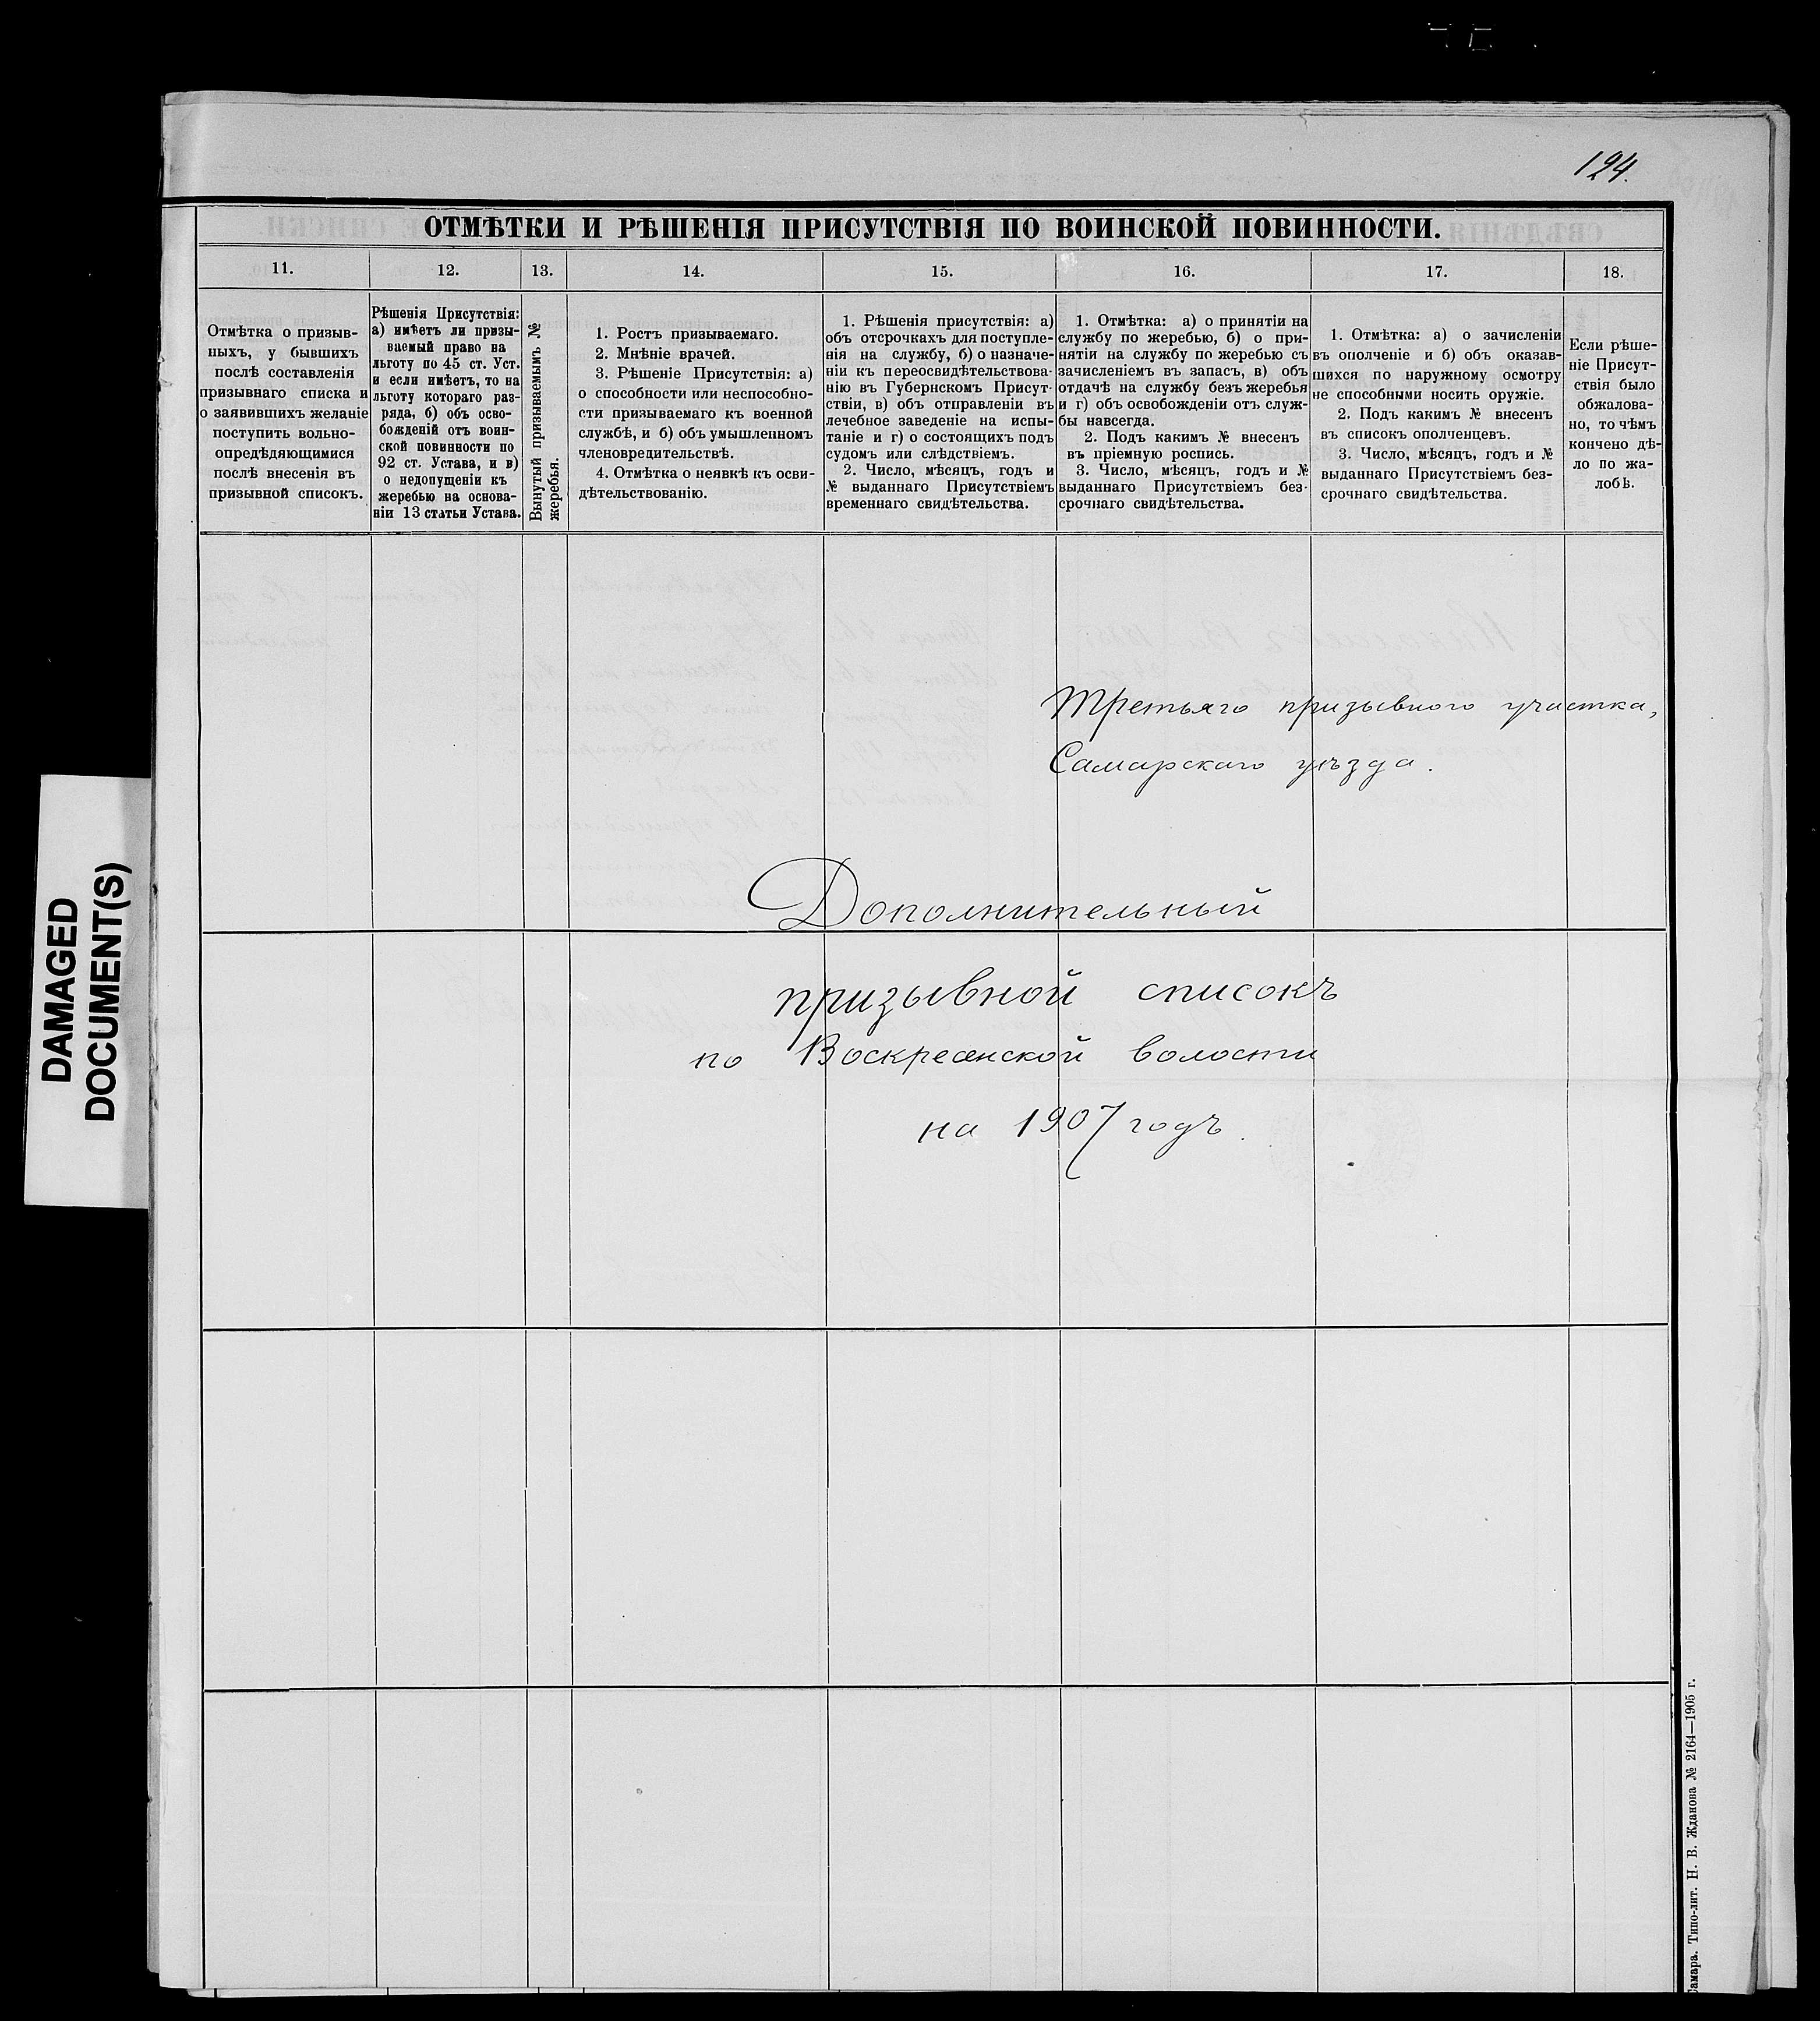 124.
ОТМѢТКИ И РѢШЕНІЯ ПРИСУТСТВІЯ ПО ВОИНСКОЙ ПОВИННОСТИ.
11.
12.
13.
14.
15.
16.
17.
18.
Отмѣтка о призыв-
ныхъ, у бывшихъ
послѣ составленія
призывнаго списка и
о заявившихъ желаніе
поступить вольно-
опредѣдяющимися
послѣ внесенія въ
призывной списокъ.
Рѣшенія Присутствія:
а) имѣетъ ли призы-
ваемый право на
льготу по 45 ст. Уст.
и если имѣетъ, то на
льготу котораго раз-
ряда, б) объ осво-
божденій отъ воин-
ской повинности по
92 ст. Устава, и в)
о недопущеніи къ
жеребью на основа-
ніи 13 статьи Устава.
Вынутый призываемымъ №
жеребья.
1. Ростъ призываемаго.
2. Мнѣніе врачей.
3. Рѣшеніе Присутствія: а)
о способности или неспособно-
сти призываемаго къ военной
службѣ, и б) объ умышленномъ
членовредительствѣ.
4. Отмѣтка о неявкѣ къ осви-
дѣтельствованію.
1. Рѣшенія присутствія: а)
объ отсрочкахъ для поступле-
нія на службу, б) о назначе-
ніи къ переосвидѣтельствова-
нію въ Губернскомъ Присут-
ствіи, в) объ отправленіи въ
лечебное заведеніе на испы-
таніе и г) о состоящихъ подъ
судомъ или слѣдствіемъ.
2. Число, мѣсяцъ, годъ и
№ выданнаго Присутствіемъ
временнаго свидѣтельства.
1. Отмѣтка: а) о принятіи на
службу по жеребью, б) о при-
нятіи на службу по жеребью съ
зачисленіемъ въ запасъ, в) объ
отдачѣ на службу безъ жеребья
и г) объ освобожденіи отъ служ-
бы навсегда.
2. Подъ какимъ № внесенъ
въ пріемную роспись.
3. Число, мѣсяцъ, годъ и №
выданнаго Присутствіемъ без-
срочнаго свидѣтельства.
1. Отмѣтка: а) о зачисленіи
въ ополченіе и б) объ оказав-
шихся по наружному осмотру
не способными носить оружіе.
2. Подъ какимъ № внесенъ
въ списокъ ополченцевъ.
3. Число, мѣсяцъ, годъ и №
выданнаго Присутствіемъ без-
срочнаго свидѣтельства.
Если рѣше-
ніе Присут-
ствія было
обжалова-
но, то чѣмъ
кончено дѣ-
ло по жа-
лобѣ.
Третьяго призывного участка,
Самарскаго уѣзда.
Дополнительный
призывной списокъ
по Воскресенской волости
на 1907 годъ.
DAMAGED
DOCUMENT(S)
Самара. Типо-лит. Н. В. Жданова № 2164—1905 г.